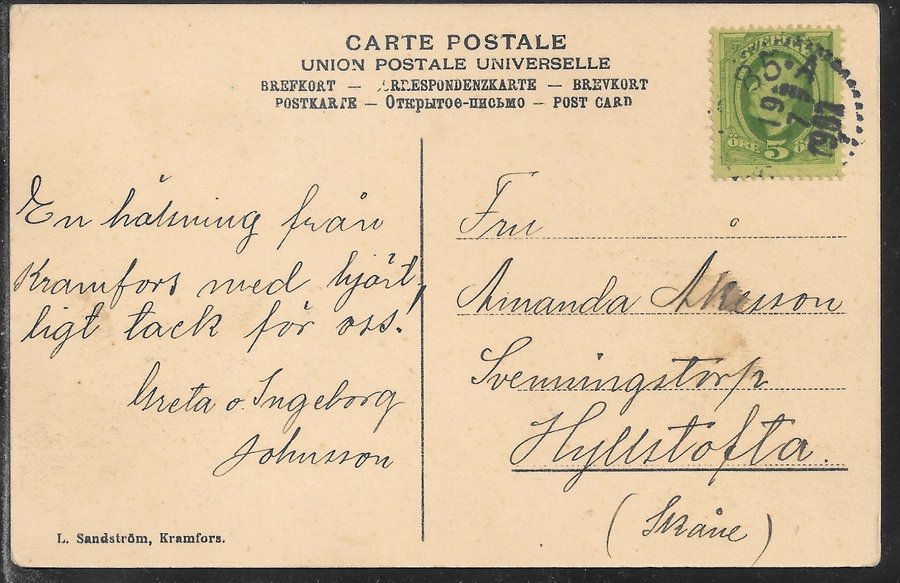 CARTE POSTALE
UNION POSTALE UNIVERSELLE
BREFKORT — CORRESPONDENZKARTE — BREVKORT
POSTKARTE — Открытое-письмо — POST CARD
ÖRE 5
85•A
19
7
1907
En hälsning från
Kramfors med hjärt,
ligt tack för oss!
Greta o. Ingeborg
Johnsson
Fru
Amanda Åkesson
Svenningstorp
Hyllstofta.
(Skåne)
L. Sandström, Kramfors.